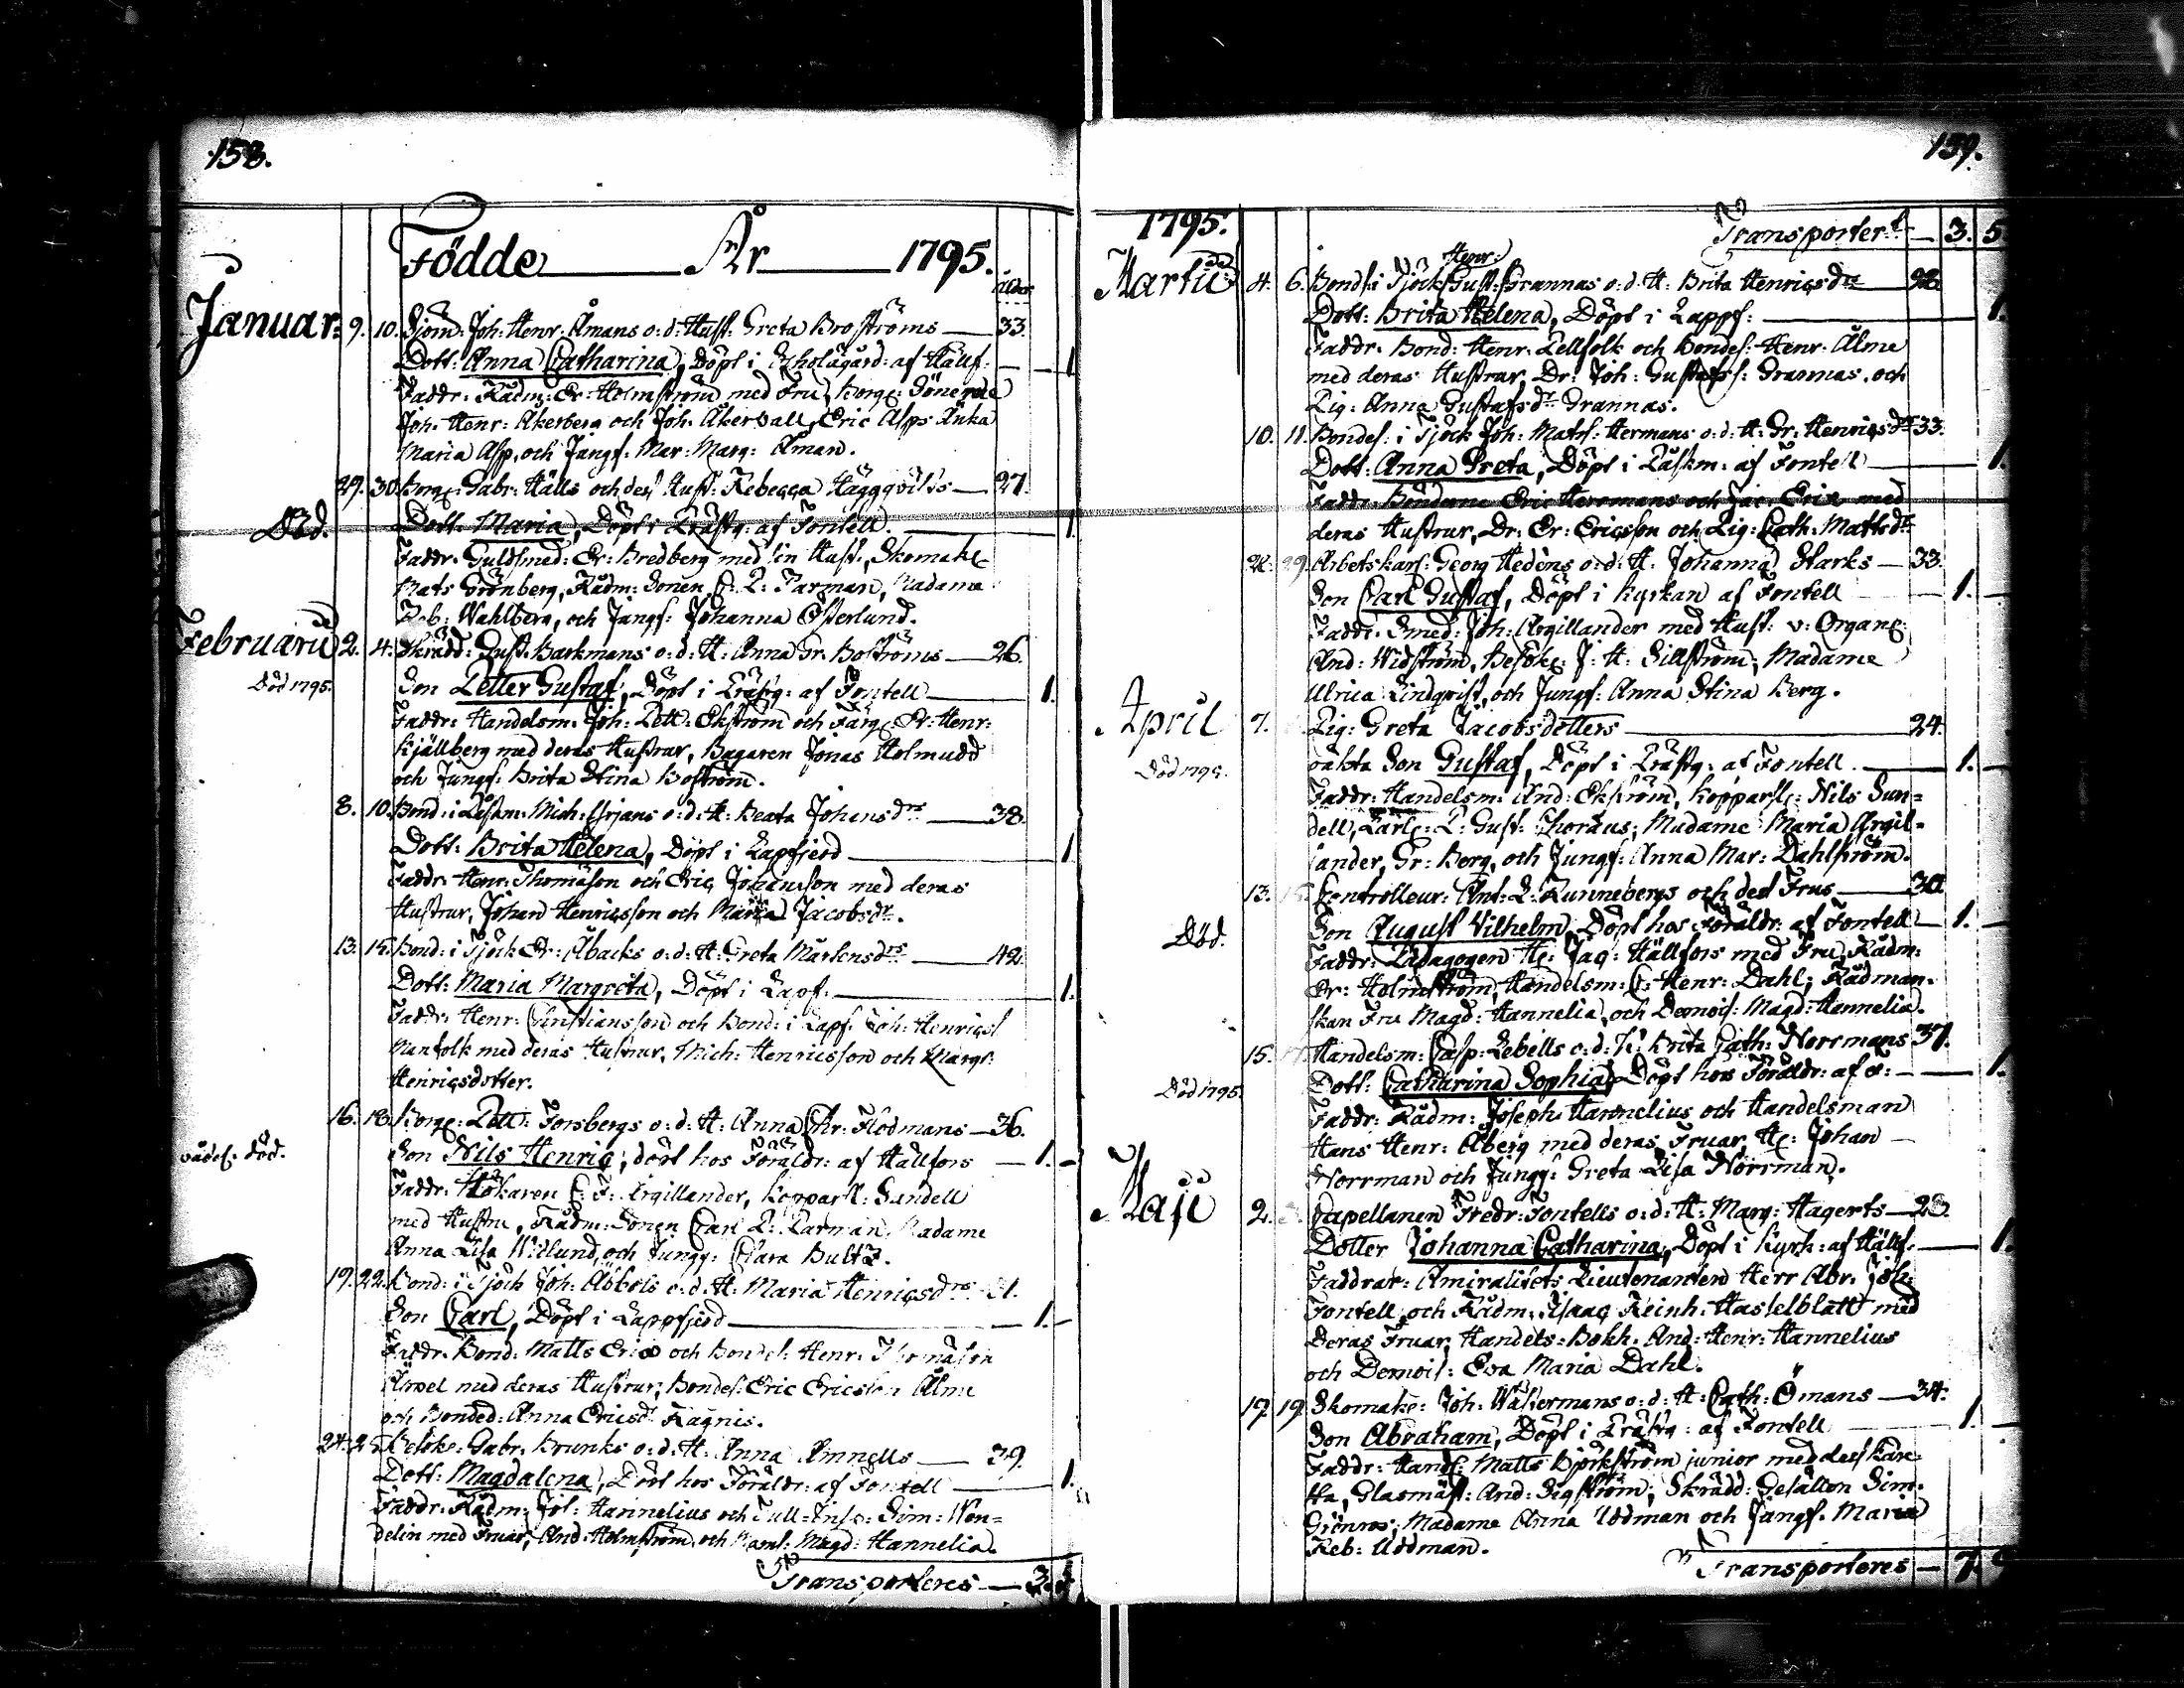 158.
Födde År 1795.
ålder
Januar: 9. 10. Sjöm: Joh: Henr: Åmans o: d: Hust: Greta Broströms — 33.
Dott: Anna Catharina, Döpt i af Hällf: — 1
Faddr: Rådm: Er: Holmström med Fru, Borg:
Joh: Henr: Åkerberg och Joh: Åkervall, Eric Asps Änka
Maria Asp, och Jungf: Mar: Marg: Åman.
29. 30. Borg: Gabr: Hälls och dess Hust: Rebecca Häggqvists — 27.
Död. Dott: Maria, Döpt i Prästg: af Fontell — 1
Faddr: Guldsmed: Er: Bredberg med sin Hust:, Skomak:
Mats Grönberg, Rådm: Sonen C: P: Parman, Madame
Reb: Wahlberg, och Jungf: Johanna Österlund.
Februarii 2. 4. Skrädd: Gust: Barkmans o: d: H: Anna Gr: Boströms — 26.
Död 1795. Son Petter Gustaf, Döpt i Prästg: af Fontell — 1.
Faddr: Handelsm: Joh: Pett: Ekström och Färg: Er: Henr:
Kjällberg med deras Hustrur, Bagaren Jonas Holmudd
och Jungf: Brita Stina Boström.
8. 10. Bond: i Låskm: Mich: o: d: H: Beata Johansdrs — 38.
Dott: Brita Helena, Döpt i Lapfjerd — 1
Faddr: Henr: Thomasson och Eric Johansson med deras
Hustrur, Johan Henricsson och Maria Jacobsdr.
13. 15. Bond: i Tjöck Er: Åbacks o: d: H: Greta Mårtensdrs — 42.
Dott: Maria Margreta, Döpt i Lapf: — 1.
Faddr: Henr: Christiansson och Bond: i Lapf: Joh: Henrics:
Manfolk med deras Hustrur, Mich: Henricsson och Margr:
Henricsdotter.
16. 18. Borg: Pett: Forsbergs o: d: H: Anna Chr: Flodmans — 36.
död. Son Nils Henric, döpt hos Föräldr: af Hällfors — 1. —
Faddr: Hökaren C: F: Argillander, Kopparsl: Sundell
med Hustru, Rådm: Sonen Carl P: Parman, Madame
Anna Lisa Widlund, och Jungf: Clara Bultz.
19. 22. Bond: i Tjöck Joh: Åbbors o: d: H: Maria Henricsdrs
Son Carl, Döpt i Lappfjerd — 1. —
Faddr: Bond: Matts Ers och Bondes: Henr: Thomasson
med deras Hustrur, Bondes: Eric Ericsson Ålme
och Bonded: Anna Ericsdr Ragnis.
24. Besök: Gabr: Brunks o: d: H: Anna Amnells — 39.
Dott: Magdalena, Döpt hos Föräldr: af Fontell — 1.
Faddr: Rådm: Jos: Hannelius och Tull-Insp: Sim: Wen-
delin med Fruar, And: Holmström, och Maml: Magd: Hannelia.
Transporteres — 3. 5.
159.
1795. Transportert — 3. 5
Martii 4. 6. Bonds: i Tjöck Henr: Gust: Grannas o: d: H: Brita Henricsdrs — 28
Dott: Brita Helena, Döpt i Lappf: — 1.
Faddr: Bond: Henr: Pellfolk och Bondes: Henr: Ålme
med deras Hustrur, Dr: Joh: Gustafss: Grannas, och
Pig: Anna Gustafsdr Grannas.
10. 11. Bondes: i Tjöck Joh: Mats: Hermans o: d: H: Gr: Henricsdrs 33.
Dott: Anna Greta, Döpt i Låskm: af Fontell — 1.
Faddr: Bönderne Eric Hermans och Jac: Erix med
deras Hustrur, Dr: Er: Ericsson och Pig: Cath: Mattsdr
29. Arbetskarl: Georg Hedens o: d: H: Johanna Starks — 33.
Son Carl Gustaf, Döpt i Kyrkan af Fontell — 1. —
Faddr: Smed: Joh: Argillander med Hust: v: Organ:
And: Widström, Besök: J: H: Sillström, Madame
Ulrica Lindqvist, och Jungf: Anna Stina Berg.
April 7. Pig: Greta Jacobsdotters — 24.
Död 1795. oäkta Son Gustaf, Döpt i Prästg: af Fontell. — 1. —
Faddr: Handelsm: And: Ekström, Kopparsl: Nils Sun-
dell, Lärl: P: Gust: Choræus, Madame Maria Argil-
lander, Gr: Berg, och Jungf: Anna Mar: Dahlström.
13. 15. Controlleur: Ant: L: Runnebergs och dess Frus — 30
Död. Son August Vilhelm, Döpt hos Föräldr: af Fontell — 1. —
Faddr: Pædagogen H: Jac: Hällfors med Fru, Rådm:
Er: Holmström, Handelsm: C: Henr: Dahl, Rådman-
skan Fru Magd: Hannelia, och Demois: Magd: Hannelia.
15. 17. Handelsm: Casp: Lebells o: d: H: Brita Cath: Norrmans 37.
Död 1795. Dott: Catharina Sophia, Döpt hos Föräldr: af — 1.
Faddr: Rådm: Joseph Hannelius och Handelsman
Hans Henr: Åberg med deras Fruar, H: Johan
Norrman och Jungf: Greta Lisa Norrman.
Maji 2. 3. Capellanen Fredr: Fontells o: d: H: Marg: Hagerts — 28.
Dotter Johanna Catharina, Döpt i Kyrk: af Hällf: — 1.
Faddrar: Amiralitets Lieutenanten Herr Abr: Joh:
Fontell och Rådm: Isaac Reinh: Hasselblatt med
deras Fruar, Handels-Bokh: And: Henr: Hannelius
och Demois: Eva Maria Dahl.
17. 19. Skomak: Joh: Wassermans o: d: H: Cath: Ömans — 34.
Son Abraham, Döpt i Prästg: af Fontell — 1.
Faddr: Hand: Matts Björkström junior med dess Käre-
sta, Glasmäst: And: Sigström, Skrädd: Gesällen Sim:
Grönros, Madame Anna Uddman och Jungf: Maria
Reb: Uddman.
Transporteres — 7.